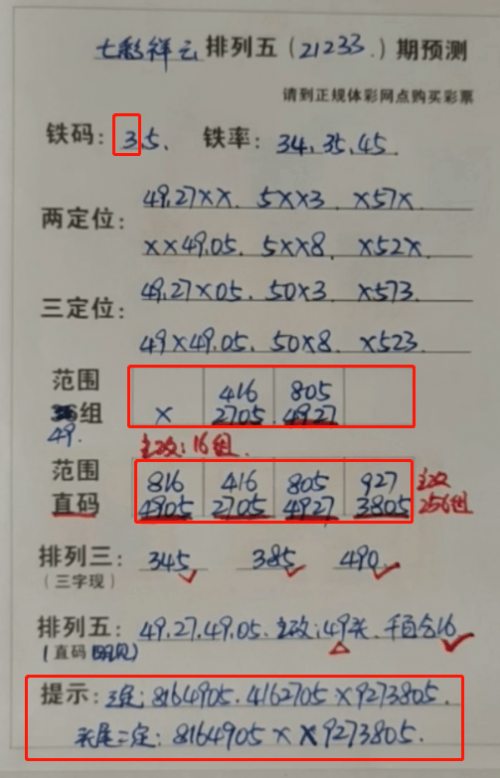 七彩祥云排列五(21233.)期预测
请到正规体彩网点购买彩票
铁码: 3.5. 铁率: 34.35.45
两定位: 49.27XX. 5XX3. X57X.
XX49.05. 5XX8. X52X.
三定位: 49.27X05. 50X3. X573.
49X49.05. 50X8. X523.
范围 416 805
组 X 2705 4927
49.
主攻:16组.
范围 816 416 805 927 主攻
直码 4905 2705 4927 3805 256组
排列三: 345 385 490
(三字现)
排列五: 49.27.49.05.主攻:49头.千百合16
(直码
提示: 三定:8164905.4162705X9273805.
头尾二定:8164905XX9273805.